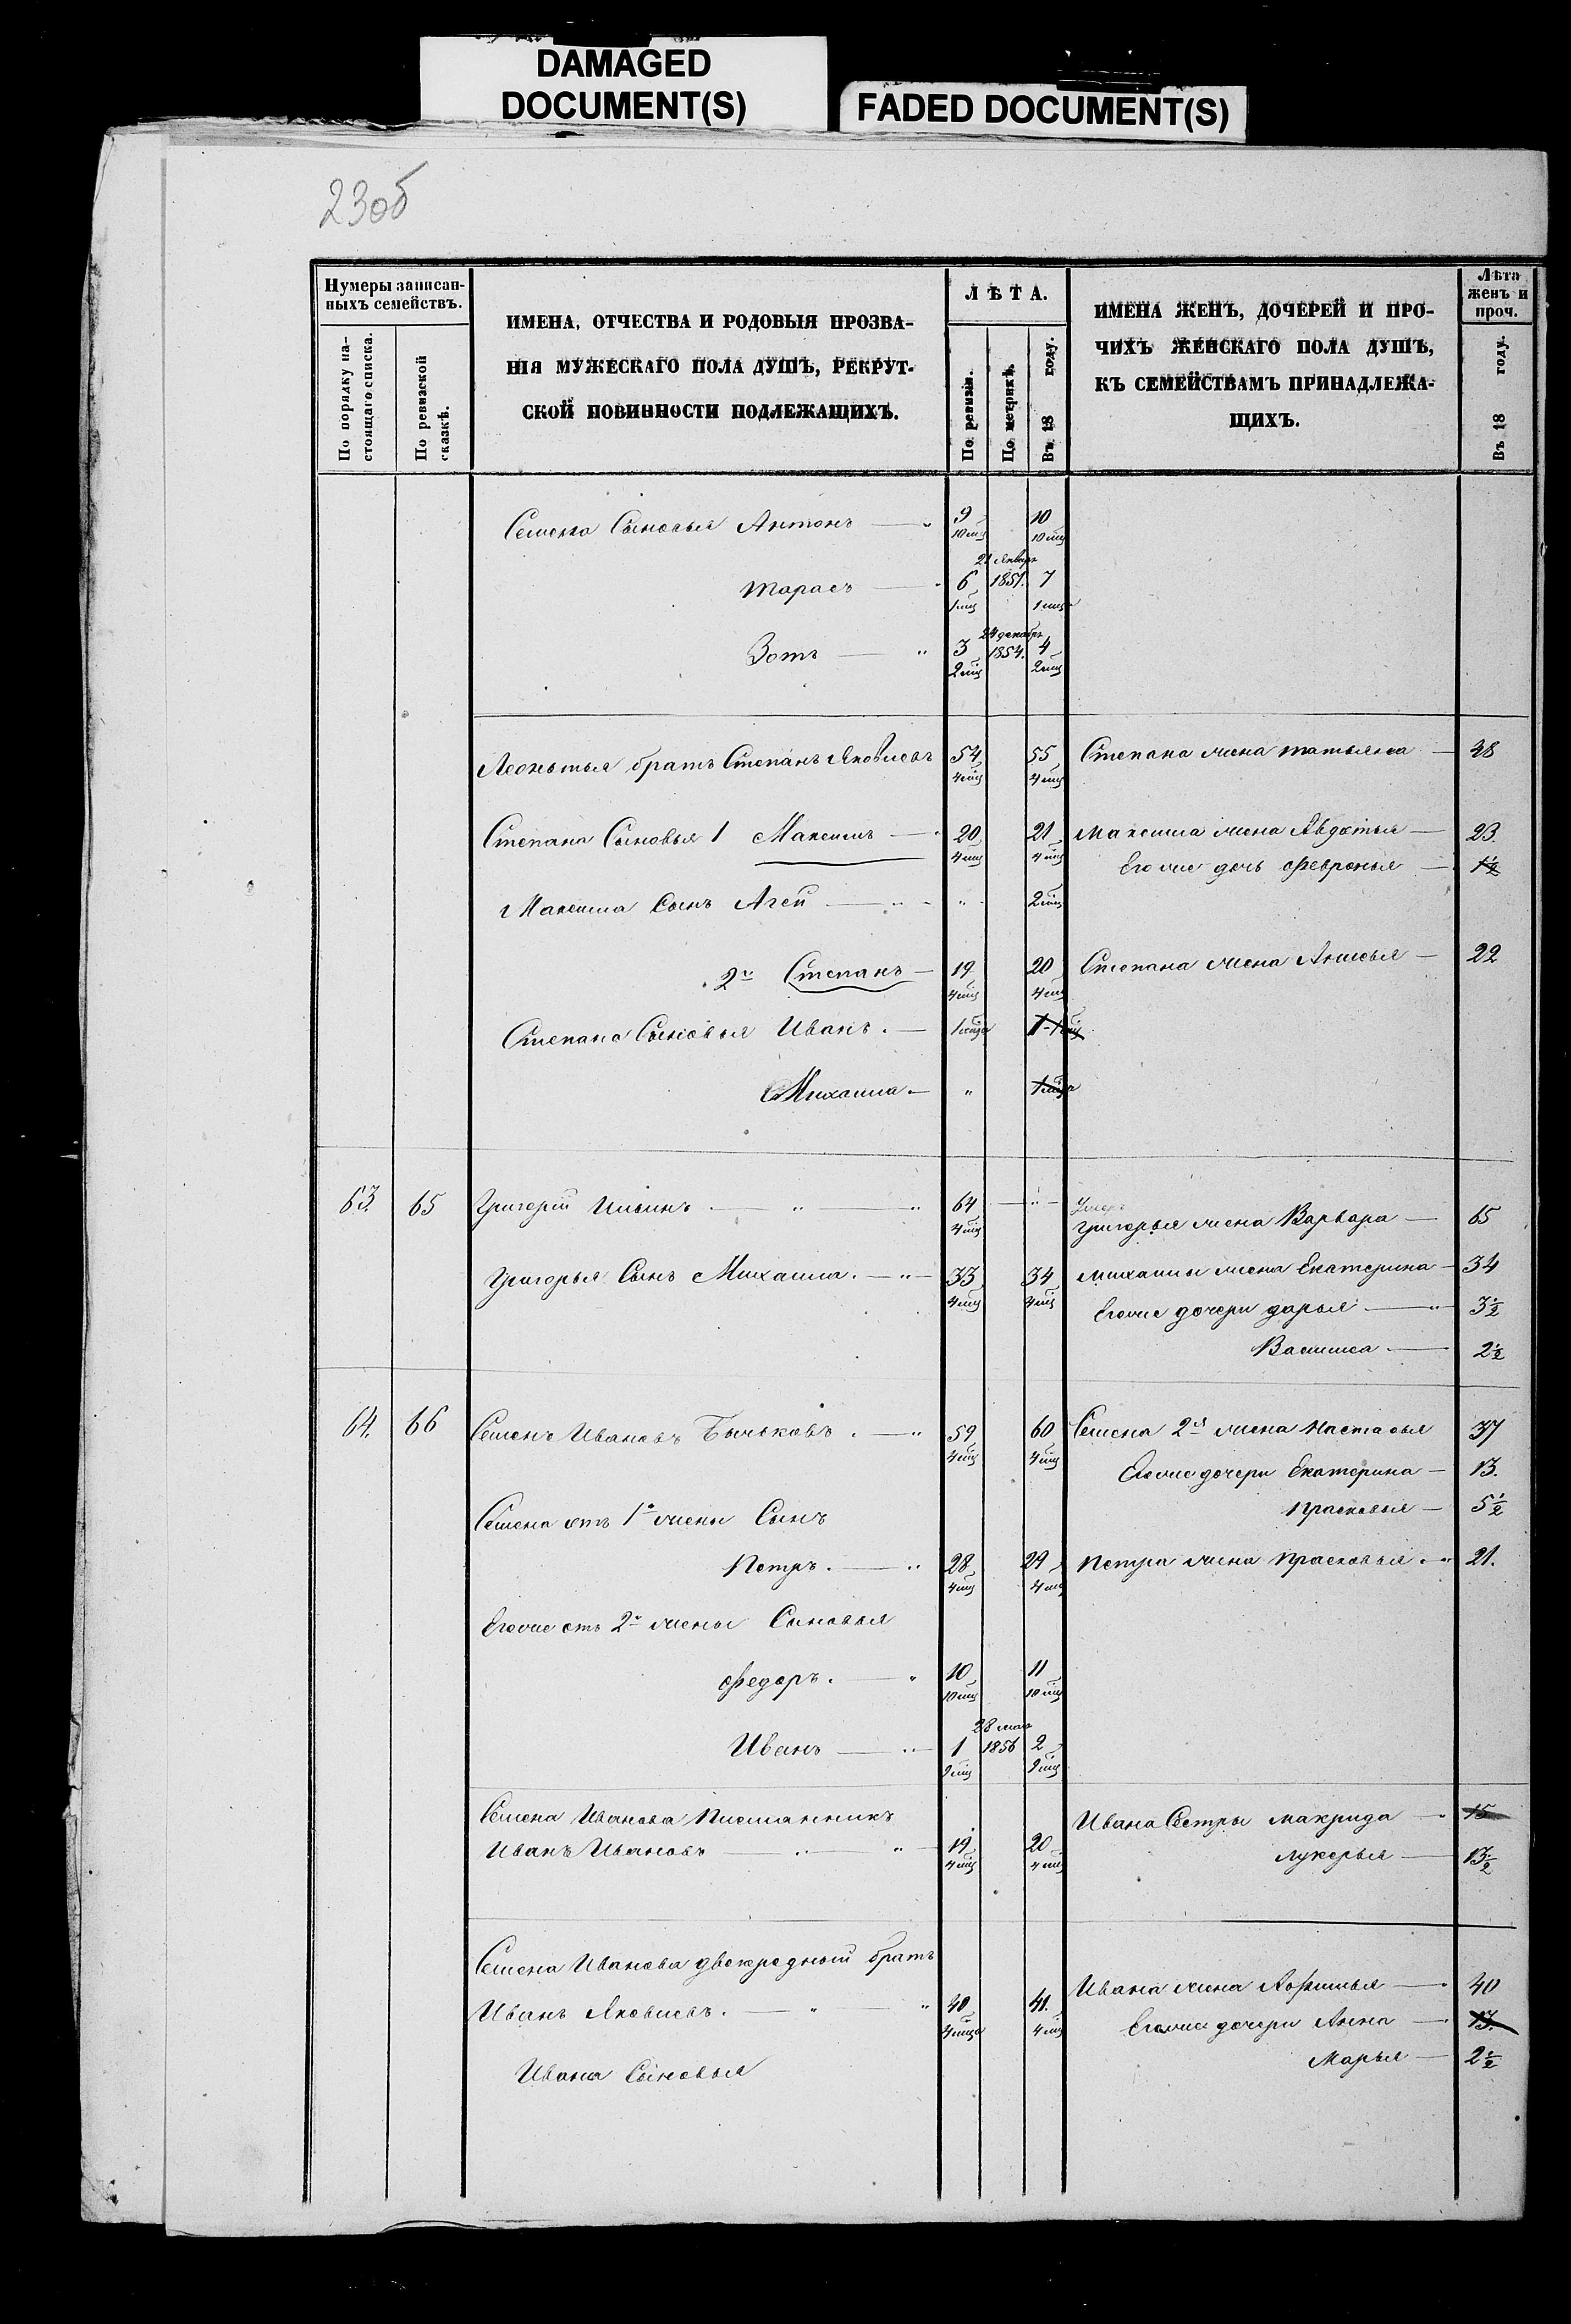 DAMAGED
DOCUMENT(S)
FADED DOCUMENT(S)
23об
Нумеры записан-
ныхъ семействъ.
По порядку на-
стоящаго списка.
По ревизской
сказкѣ.
ИМЕНА, ОТЧЕСТВА И РОДОВЫЯ ПРОЗВА-
НІЯ МУЖЕСКАГО ПОЛА ДУШЪ, РЕКРУТ-
СКОЙ ПОВИННОСТИ ПОДЛЕЖАЩИХЪ.
ЛѢТА.
По ревизіи.
По метрикѣ.
Въ 18 году.
ИМЕНА ЖЕНЪ, ДОЧЕРЕЙ И ПРО-
ЧИХЪ ЖЕНСКАГО ПОЛА ДУШЪ,
КЪ СЕМЕЙСТВАМЪ ПРИНАДЛЕЖА-
ЩИХЪ.
Лѣта
женъ и
проч.
Въ 18 году.
Семена Сыновья Антонъ — 9 10
10мц 10мц
21 Январь
Тарасъ — 6 1851. 7
1мц 1мца
24 декабрь
Зотъ — " 3 1854. 4
2мц 2мц
Леонтья братъ Степанъ Яковлевъ 54 55 Степана жена Татьяна — 38
4мц 4мц
Степана Сыновья 1 Максимъ — 20 21 Максима жена Авдотья — 23.
4мц 4мц Его же дочь Февронья — 1½
1 Максима Сынъ Агей — " — " 2мц
2й Степанъ — 19 20 Степана жена Анисья — 22
4мц 4мц
Степана Сыновья Иванъ. — 1мца 1-1мц
Михаила — " 1мца
63. 65 Григорій Ильинъ — " — " 64 — " — Умеръ
4мц Григорья жена Варвара — 65
Григорья Сынъ Михаила. — " — 33 34 Михаилы жена Екатерина — 34
4мц 4мц Его же дочери Дарья — " 3½
Василиса — 2½
64. 66 Семенъ Ивановъ Бычковъ. — " 59 60 Семена 2я жена Настасья 37
4мц 4мц Его же дочери Екатерина — 13.
Семена отъ 1й жены Сынъ Прасковья — 5½
Петръ. — " 28 29 Петра жена Прасковья. — " 21.
4мц 4мц
Его же отъ 2й жены Сыновья
Федоръ. — " 10 11
10мц 10мц
28 мая
Иванъ — " — 1 1856 2
9мц 9мц
Семена Иванова Племянникъ Ивана Сестры Макрида — " 15
Иванъ Ивановъ — " — " — 19 20 Лукерья — 13½
4мц 4мц
Семена Иванова двоюродный братъ
Иванъ Яковлевъ. — " — " 40 41. Ивана жена Афимья — 40
4мца 4мц Его же дочери Анна — 13.
Ивана Сыновья Марья — 2½